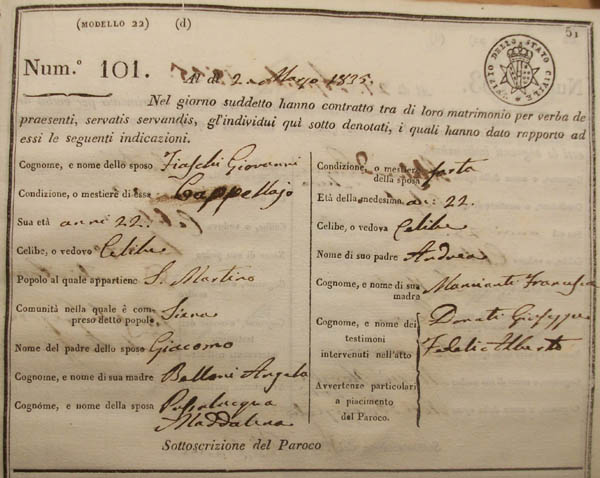 (MODELLO 22) (d)
51
Num.º 101. Al dì 2 Marzo 1835.
UFIZIO DELLO STATO CIVILE
Nel giorno suddetto hanno contratto tra di loro matrimonio per verba de
praesenti, servatis servandis, gl'individui quì sotto denotati, i quali hanno dato rapporto ad
essi le seguenti indicazioni.
Cognome, e nome dello sposo Fiaschi Giovanni
Condizione, o mestiere di esse Cappellajo
Sua età anni 22.
Celibe, o vedovo Celibe
Popolo al quale appartiene S. Martino
Comunità nella quale è com-
preso detto popolo Siena
Nome del padre dello sposo Giacomo
Cognome, e nome di sua madre Belloni Angela
Cognóme, e nome della sposa
Maddalena
Condizione, o mestiere
della sposa sarta
Età della medesima an: 22.
Celibe, o vedova Celibe
Nome di suo padre Andrea
Cognome, e nome di sua
madra Francesca
Cognome, e nome dei
testimoni
intervenuti nell'atto
Donati Giuseppe
Fedeli Alberto
Avvertenze particolari
a piacimento
del Paroco.
Sottoscrizione del Paroco